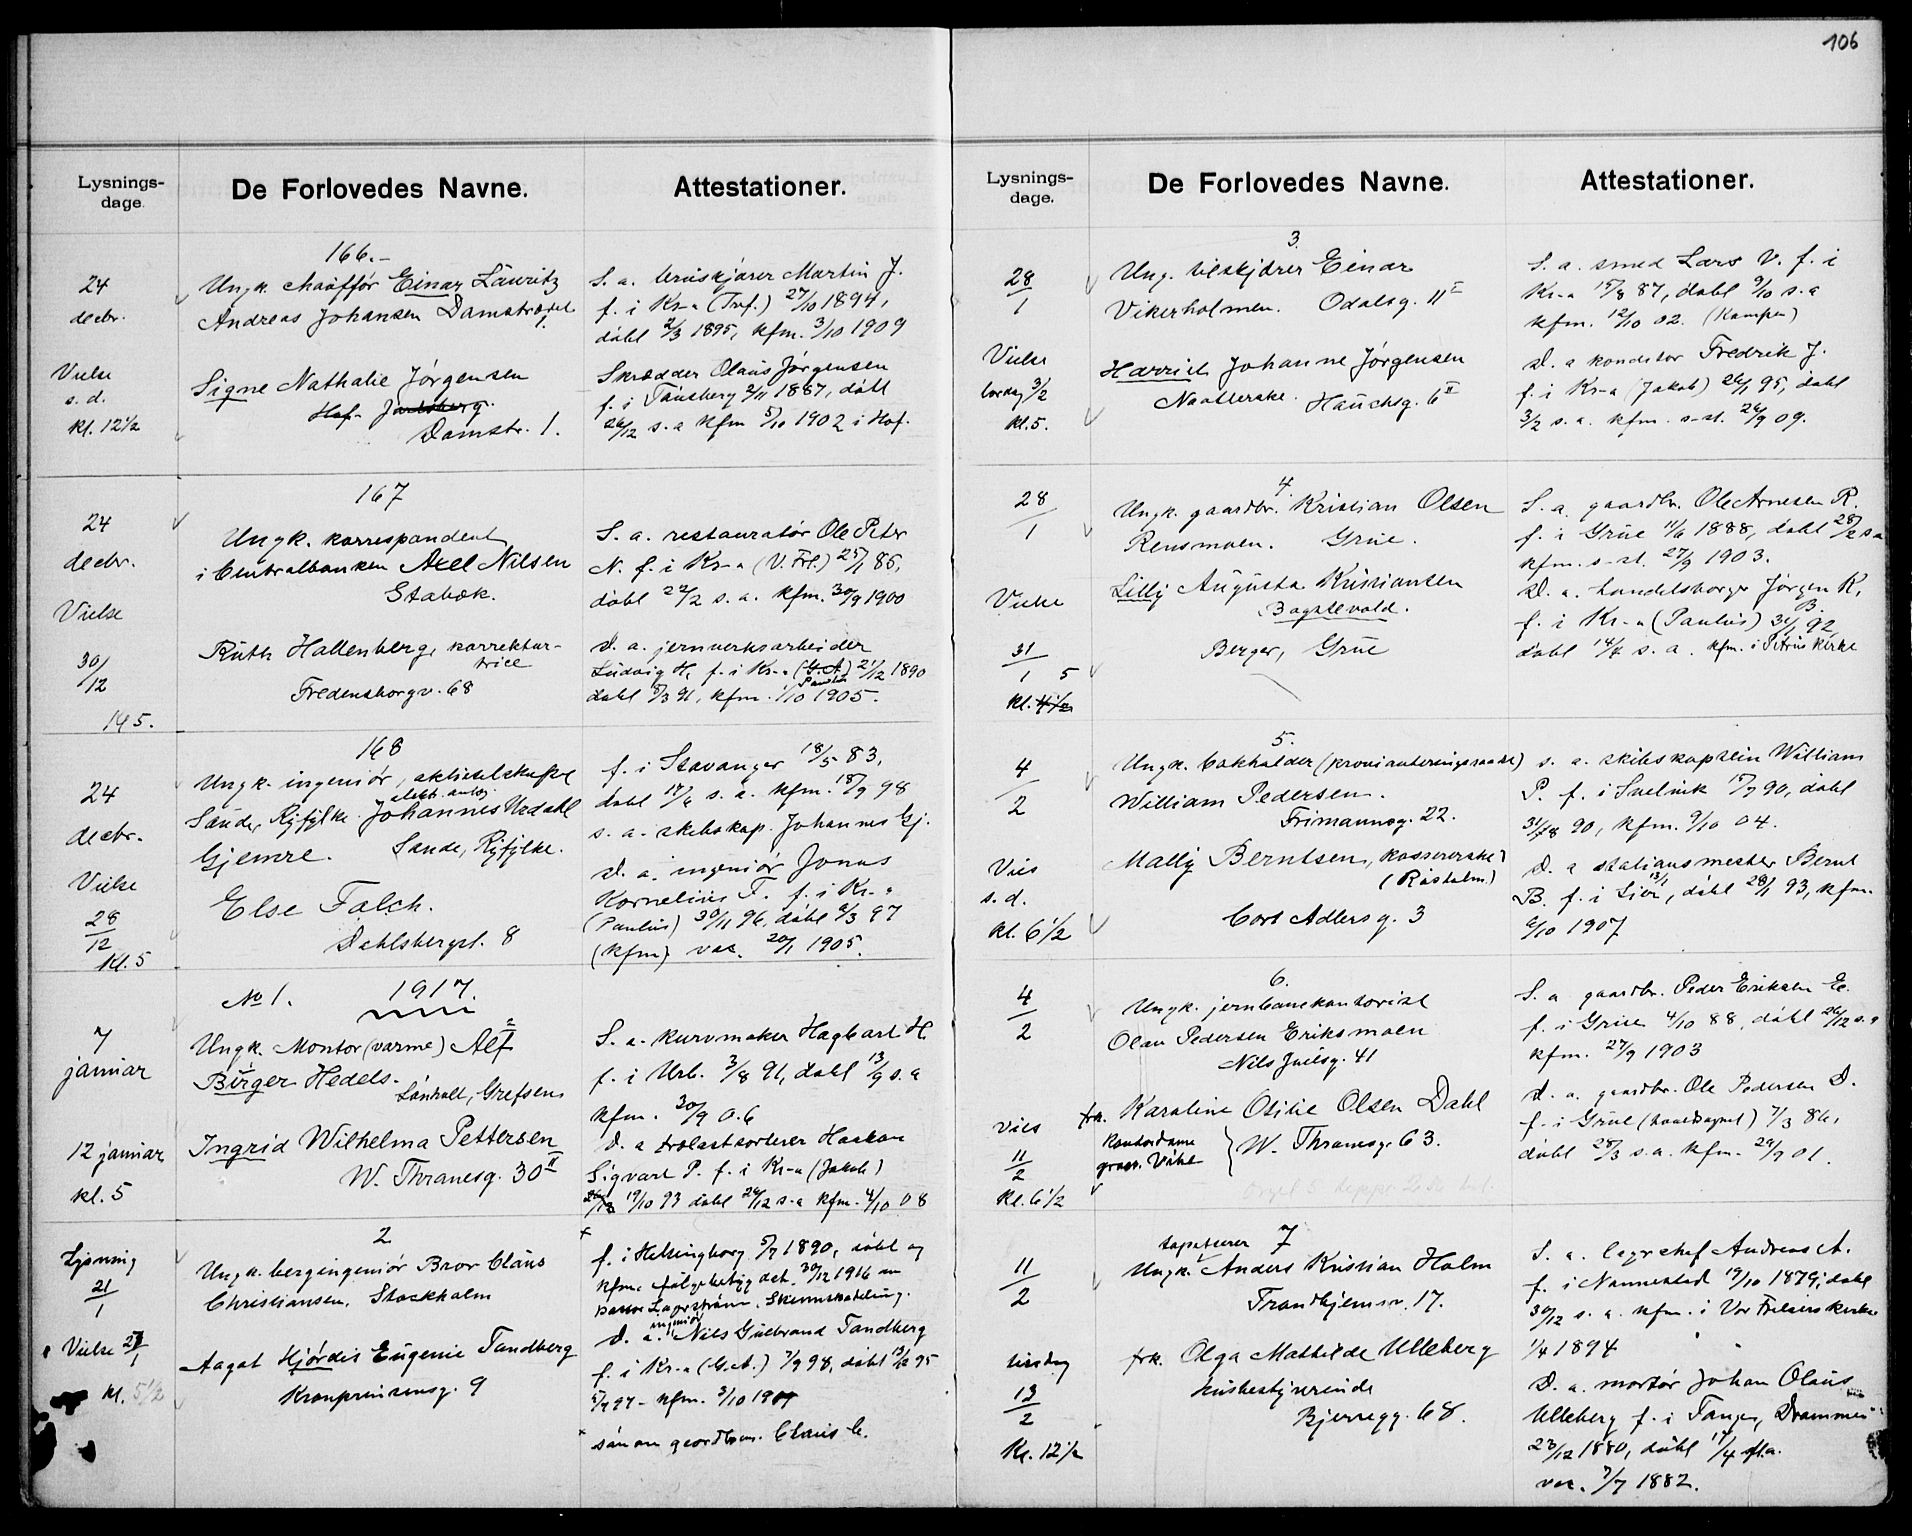 106
Lysnings-
dage.
De Forlovedes Navne.
Attestationer.
166.-
24
decbr.
Vielse
s. d.
kl. 12½
Ungk. chauffør Einar Lauritz
Andreas Johansen Damstrædet
1.
Signe Nathalie Jørgensen
Hof- Jarlsberg.
Damstr. 1.
S. a. bruskjører Martin J.
f. i Kr-a (Tref.) 27/10 1894,
døbt 2/3 1895, kfm. 3/10 1909
Skrædder Olaus Jørgensen
f. i Tønsberg 2/11 1887, døbt
26/12 s. a kfm 5/10 1902 i Hof.
167
24
decbr.
Vielse
30/12
Ungk. korrespondent
i Centralbanken Axel Nilsen
Stabæk.
Ruth Hallenberg, korrektur-
trice
Fredensborgv. 68
S. a. restauratør Ole Peter
N. f. i Kr-a (V. Frl.) 25/1 85,
døbt 22/2 s. a. kfm. 30/9 1900
D. a. jernverksarbeider
Ludvig H, f. i Kr-a (G.A) 21/12 1890
Paulus
døbt 8/3 91, kfm. 1/10 1905.
168
24
decbr.
Vielse
28/12
Kl. 5
Ungk. ingeniør, aktieselskapet
elekt. anlæg
Sande, Ryfylke Johannes Urdahl
Gjemre. Sande, Ryfylke.
Else Falch.
Dahlsbergst. 8
f. i Stavanger 18/5 83,
døbt 17/6 s. a. kfm. 18/9 98
s. a. skibskap. Johannes Gj.
D. a. ingeniør Jonas
Kornelius F. f. i Kr.a
(Paulus) 30/11 96, døbt 8/3 97
(kfm) vac. 20/1 1905.
No 1. 1917.
7
januar
12 januar
kl. 5
Ungk. Montør (varme) Alf
Birger Hedels.
Lønhalt, Grefsen
Ingrid Wilhelma Pettersen
W. Thranesg. 30 II
S. a. kurvmaker Hagbart H.
f. i Urb. 3/8 91, døbt 13/9 s. a
kfm. 30/9 06
D. a tobakssorterer Haakon
Sigvart P. f. i Kr-a (Jakob)
19/10 93 døbt 26/12 s-a kfm. 4/10 08
2
Lysning
21/1
Vielse 27/1
kl. 5½
Ungk. bergingeniør Bror Claus
Christiansen, Stockholm
Aagot Hjørdis Eugenie Tandberg
Kronprinsensg. 9
f. i Helsingborg 5/7 1890, døbt og
kfm. følge betyg dat. 30/12 1916 av
pastor Lagerstrøm.
ingeniør
D. a. Nils Gulbrand Tandberg
f. i Kr-a (G.A.) 7/9 98, døbt
5/7 97- kfm. 3/10 1909
søn av gaardbr. Claus C.
Lysnings-
dage.
De Forlovedes Navne.
Attestationer.
3.
28/1
Vielse
lørdag 3/2
kl. 5.
Ung. tilskjærer Einar
Vikerholmen. Odalsg. 11 I
Harriet Johanne Jørgensen
Naatlerske. Hauchsg. 6 II
S. a. smed Lars V. f. i
Kr-a 15/8 87, døbt 9/10 s. a
kfm. 12/10 02. (Kampen)
D. a konditor Fredrik J.
f. i Kr-a (Jakob) 26/1 95, døbt
3/2 s. a. kfm. s-st. 26/9 09.
4.
28/1
Vielse
31/1 5
kl. 4½
Ungk. gaardbr. Kristian Olsen
Rensmoen. Grue.
Lilly Augusta Kristiansen
Bagstevold.
Berger, Grue
S. a. gaardbr. Ole Arnesen R.
f. i Grue 11/6 1888, døbt
kfm. s-st. 27/9 1903.
D. a. handelsborger Jørgen K.
B.
f. i Kr-a (Paulus) 31/1 92
døbt 14/4 s. a. kfm. i Petrus kirke
5.
4/2
Vies
s. d.
kl. 6½
Ungk. bokholder (provianteringsraadet)
William Pedersen.
Frimannsg. 22.
Mally Berntsen, kassererske
(Røsholm.)
Cort Adlersg. 3
s. a. skibskaptein William
P. f. i Svelvik 15/7 90, døbt
31/8 90, kfm. 9/10 04.
D. a stationsmester Bernt
B. f. i Lier 13/1, døbt 28/1 93, kfm.
6/10 1907
6.
4/2
vies
11/2
Kl. 6½
Ungk. jernbanekontorist
Olav Pedersen Eriksmoen
Nils Juelsg. 41
frk. Karoline Otilie Olsen Dahl
kontordame
W. Thranesg. 63.
S. a gaardbr. Peder Eriksen E.
f. i Grue 4/10 88, døbt 26/12 s. a
kfm. 27/9 1903
D. a. gaardbr. Ole Pedersen D.
f. i Grue 7/3 86,
døbt 28/3 s. a. kfm. 29/9 01.
7
11/2
tirsdag
13/2
Kl. 12½
tapetserer
Ungk. Anders Kristian Holm
Trondhjemsv. 17.
frk. Olga Mathilde Ulleberg
husbestyrerinde
Bjerregg. 68.
S. a. lagerchef Andreas A.
f. i Nannestad 19/10 1879, døbt
30/12 s. a. kfm. i Vor Frelsers kirke
1/4 1894
D. a. mortør Johan Olaus
Ulleberg f. i Tangen, Drammen
23/12 1880, døbt 17/4 fl.a.
vac. 7/7 1882.